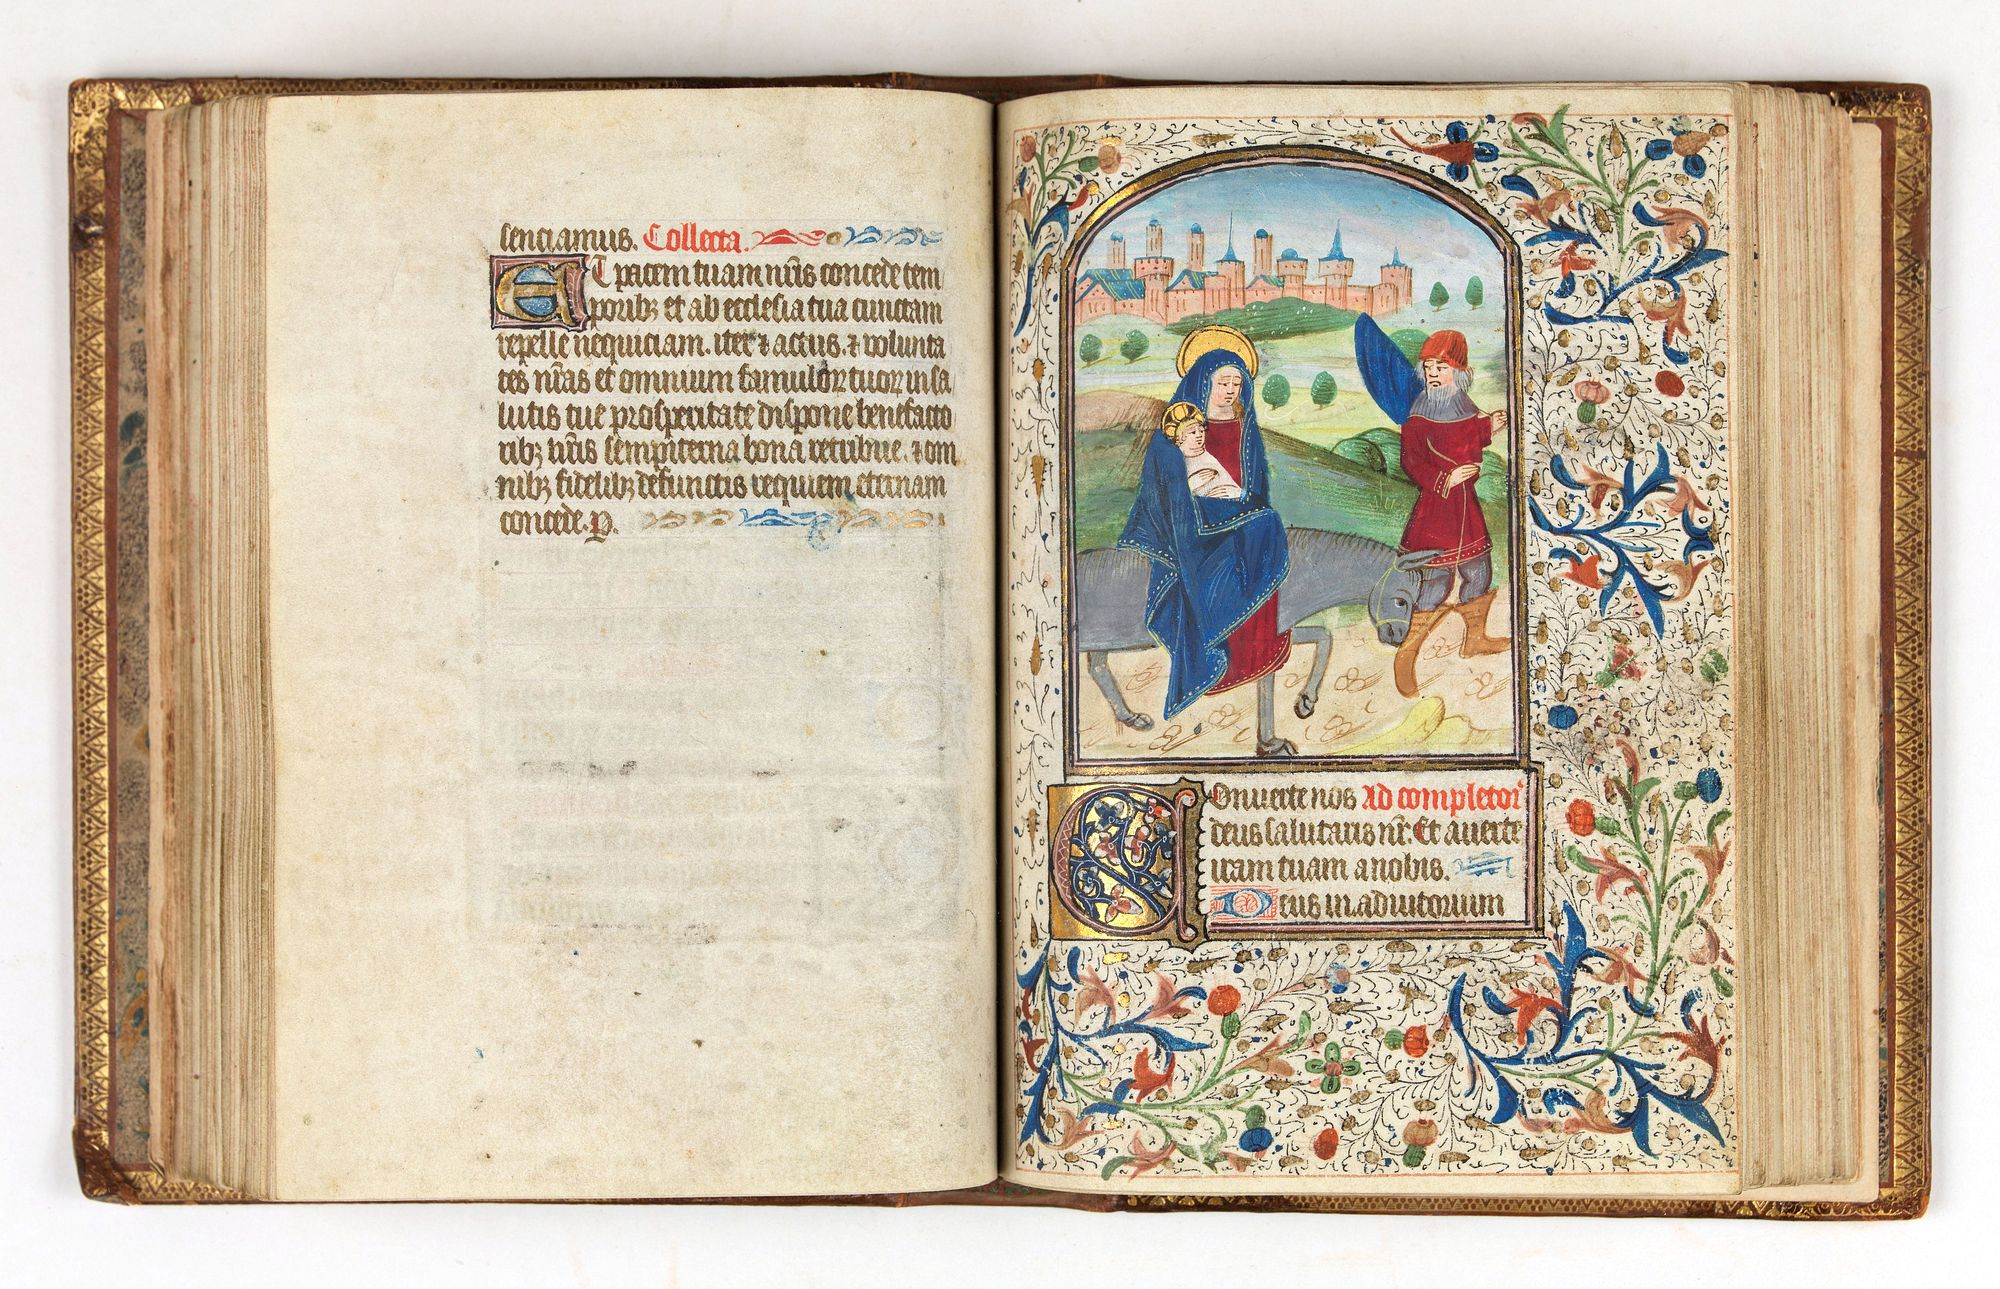 senciamus. Collecta.
ET pacem tuam nr̃is concede tem
poribꝫ et ab ecclesia tua cunctam
repelle nequiciam. iter ⁊ actus. ⁊ volunta
tes nr̃as et omnium famuloꝝ tuoꝝ in sa
lutis tue prosperitate dispone benefacto
ribꝫ nr̃is sempiterna bona retribue. ⁊ om
nibꝫ fidelibꝫ defunctis requiem eternam
concede. P.
Conuerte nos Ad completor᷑
deus salutaris nr̃. Et auerte
iram tuam a nobis.
Deus in adiutorium